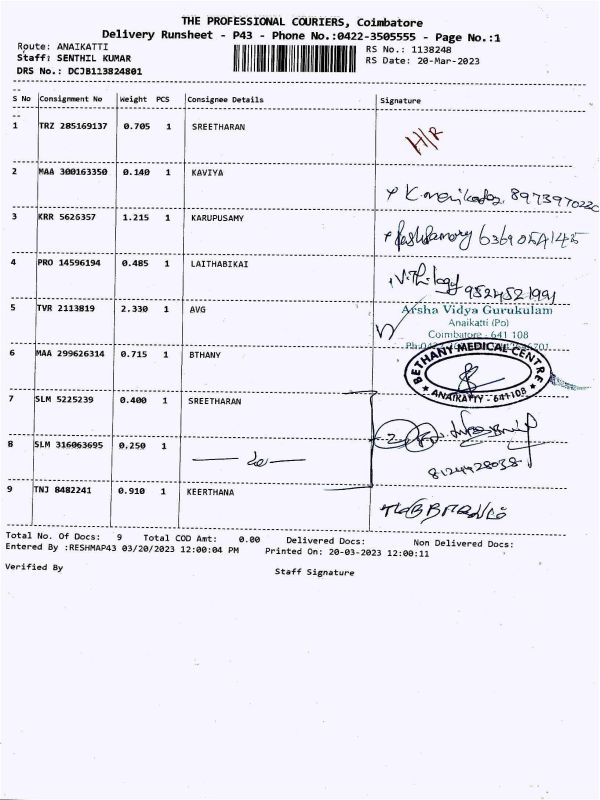 THE PROFESSIONAL COURIERS, Coimbatore
Delivery Runsheet - P43 - Phone No.:0422-3505555 - Page No.:1
Route: ANAIKATTI
RS No.: 1138248
Staff: SENTHIL KUMAR
RS Date: 20-Mar-2023
DRS No.: DCJB113824801
S No Consignment No Weight PCS Consignee Details Signature
1 TRZ 285169137 0.705 1 SREETHARAN H/R
2 MAA 300163350 0.140 1 KAVIYA
3 KRR 5626357 1.215 1 KARUPUSAMY
4 PRO 14596194 0.485 1 LAITHABIKAI 9524521991
5 TVR 2113819 2.330 1 AVG
Arsha Vidya Gurukulam
Anaikatti (Po)
Coimbatore - 641 108
6 MAA 299626314 0.715 1 BTHANY
BETHANY MEDICAL CENTRE
ANAIKATTY - 641108
7 SLM 5225239 0.400 1 SREETHARAN
8 SLM 316063695 0.250 1
8124428038
9 TNJ 8482241 0.910 1 KEERTHANA
Total No. Of Docs: 9 Total COD Amt: 0.00 Delivered Docs: Non Delivered Docs:
Entered By :RESHMAP43 03/20/2023 12:00:04 PM Printed On: 20-03-2023 12:00:11
Verified By
Staff Signature